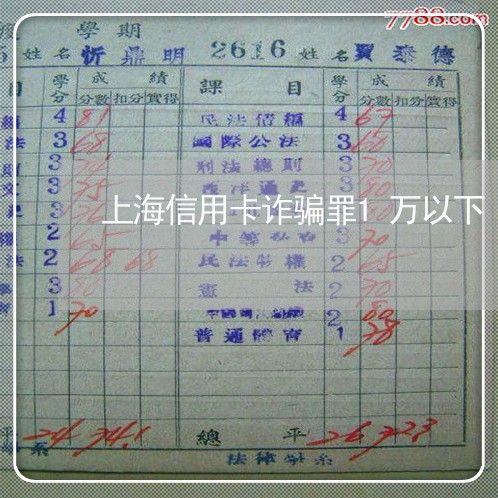 7788.com
度 學期
姓名 忻鼎明 2616 姓名 賈泰德
目 學分 成績 課目 學分 成績
分數 扣分 實得 分數 扣分 實得
4 81 民法債編 4 67
法 3 68 國際公法 3 60
3 刑法總則 3 70
3 75 西洋通史 80
上海信用卡诈骗罪1万以下
2 65 3 70
法 2 68 68 民法物權 2 65
3 80 憲法 2 70
1 70 2 80
普通體育 1 78
平 24 74.1 總平 26 72.3
系 法律學系